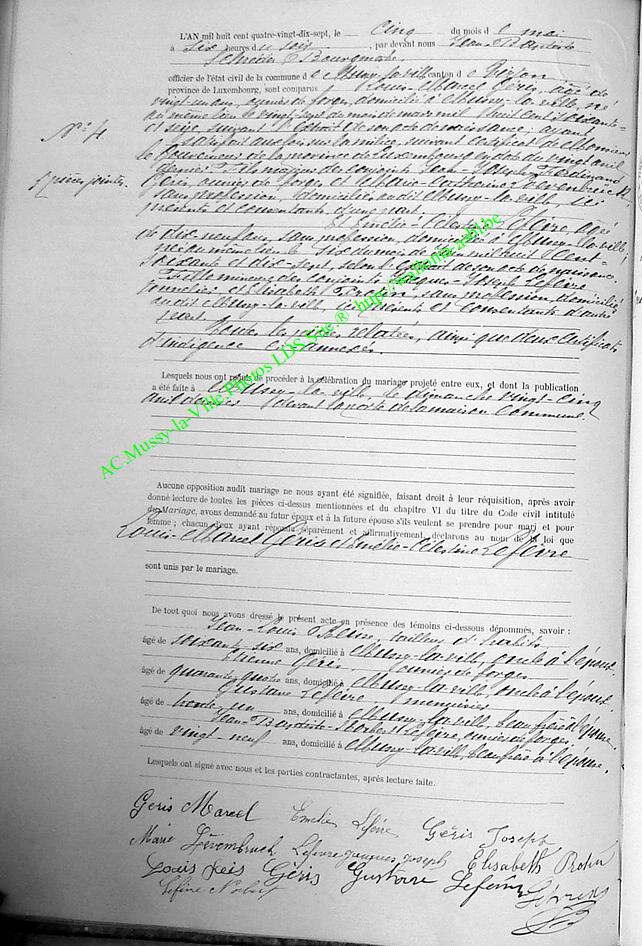 L'AN mil huit cent quatre-vingt-dix-sept, le cinq du mois de mai
à six heures du soir, par devant nous Jean-Baptiste
officier de l'état civil de la commune de Mussy-la-ville canton de Virton
province de Luxembourg, sont comparus Louis-Marcel Géris, âgé de
vingt un ans, ouvrier de forges, domicilié à Mussy-la-ville, né
au même lieu le vingt-sept du mois de mars mil huit cent soixante-
et seize, suivant l'extrait de son acte de naissance; ayant
satisfait aux lois sur la milice, suivant certificat de Monsieur
le Gouverneur de la province de Luxembourg en date du vingt avril
dernier. Fils majeur des conjoints Jean-Joseph Ferdinand
Géris, ouvrier de forges et Marie-Catherine
sans profession, domiciliés audit Mussy-la-ville, ici
présents et consentants, d'une part.
N° 4
7 pièces jointes.
Et Emélie-Célestine Lefèvre, âgée
de dix neuf ans, sans profession, domiciliée à Mussy-la-ville,
née au même lieu le six du mois de mil huit cent-
soixante et dix-sept, selon l'extrait de son acte de naissance
Fille mineure des conjoints Jacques-Joseph Lefèvre
journalier et Elisabeth Protin, sans profession, domiciliés
audit Mussy-la-ville, ici présents et consentants d'autre
part.
Toutes les pièces relatées, ainsi que deux certificats
d'indigence ci-annexés.
Lesquels nous ont requis de procéder à la célébration du mariage projeté entre eux, et dont la publication
a été faite à Mussy-la-ville, le dimanche vingt-cinq
avril dernier devant la porte de la maison Commune.
AC.Mussy-la-Ville.Photos LDS.Site.® http://wallonia-asbl.be
Aucune opposition audit mariage ne nous ayant été signifiée, faisant droit à leur réquisition, après avoir
donné lecture de toutes les pièces ci-dessus mentionnées et du chapitre VI du titre du Code civil intitulé
du Mariage, avons demandé au futur époux et à la future épouse s'ils veulent se prendre pour mari et pour
femme; chacun d'eux ayant répondu séparément et affirmativement, déclarons au nom de la loi que
Louis-Marcel Géris et Emélie-Célestine Lefèvre
sont unis par le mariage.
De tout quoi nous avons dressé le présent acte en présence des témoins ci-dessous dénommés, savoir :
Jean-Louis tailleur d'habits
âgé de soixante six ans, domicilié à Mussy-la-ville, oncle à l'époux
Etienne Géris ouvrier de forges
âgé de quarante quatre ans, domicilié à Mussy-la-ville, oncle à l'époux
Gustave Lefèvre, menuisier
âgé de trente un ans, domicilié à Mussy-la-ville, beau frère à l'épouse,
Jean-Baptiste-Norbert Lefèvre, ouvrier de forges,
âgé de vingt neuf ans, domicilié à Mussy-la-ville, beau frère à l'épouse.
Lesquels ont signé avec nous et les parties contractantes, après lecture faite.
Géris Marcel Emélie Lefèvre Géris Joseph
Marie Lefevre jacques joseph Elisabeth Protin
Louis Géris Gustave Lefèvre
Lefèvre Norbert